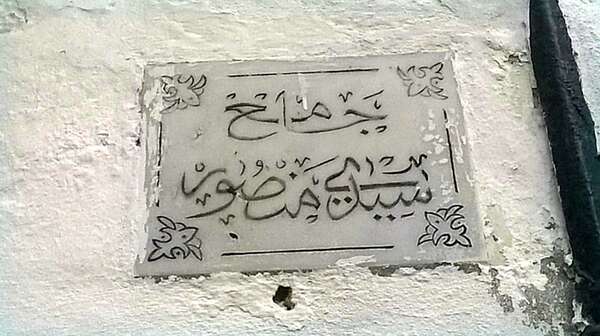 جامع
سيدي منصور